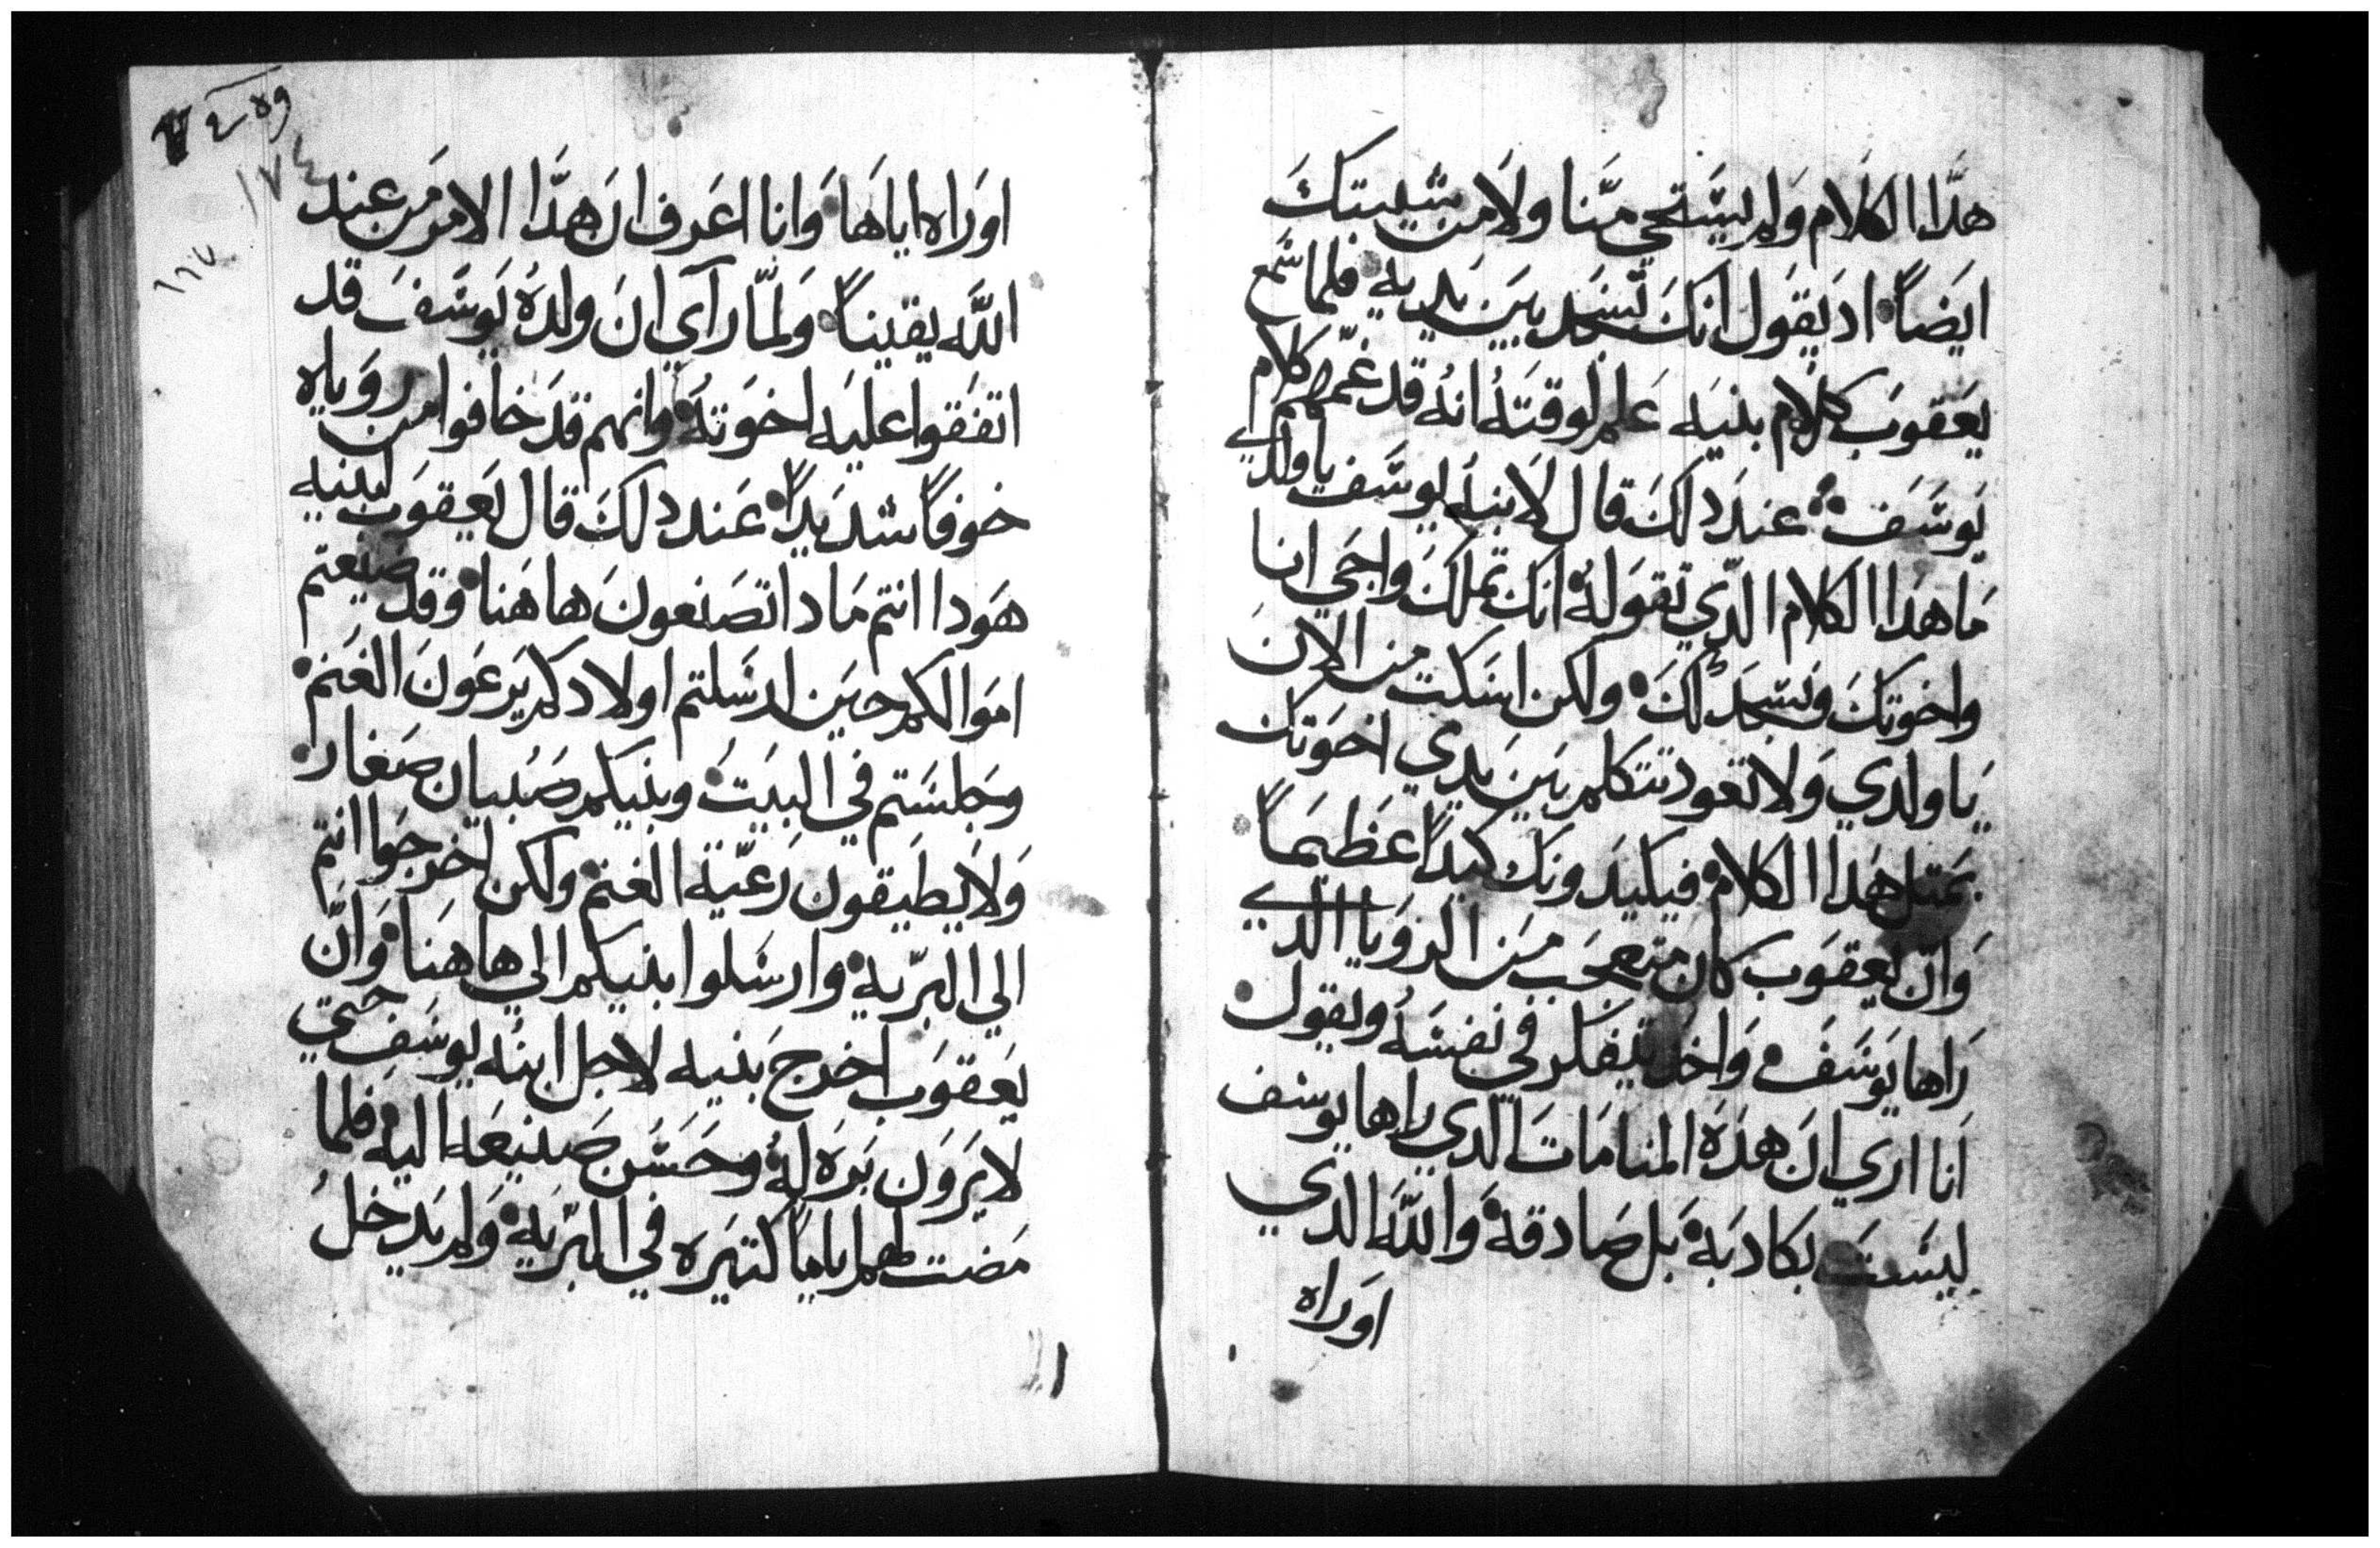 هدا الكلام ولم يستحي منا ولا من شيبتك
ايضاً اد يقول انك تسجد بين يديه فلما سمع
يعقوب كلام بنيه علم لوقته انه قد غمهم كلام
يوسف عند دلك قال لابنه يوسف ياولدي
ما هدا الكلام الدي تقوله انك تملك واجي انا
واخوتك ونسجد لك ولكن اسكت من الان
يا ولدي ولا تعود تتكلم بين يدي اخوتك
بمتل هدا الكلام فيكيدونك كيداً عظيماً
وان يعقوب كان متعجب من الرويا الدي
راها يوسف واخد يتفكر في نفسه ويقول
انا اري ان هده المنامات الدي راها يوسف
ليست بكادبة بل صادقة والله الدي
اوراه
اوراه اياها وانا اعرف ان هدا الامر من عند
الله يقيناً ولما رآي ان ولده يوسف قد
اتفقوا عليه اخوته وانهم قد خافوا من روياه
خوفاً شديداً عند دلك قال يعقوب لبنيه
هودا انتم مادا تصنعون هاهنا وقد ضيعتم
اموالكم حين ارسلتم اولادكم يرعون الغنم
وجلستم في البيت وبنيكم صبيان صغار
ولا يطيقون رعية الغنم ولكن اخرجوا انتم
الي البرية وارسلوا بنيكم الي هاهنا وان
يعقوب اخرج بنيه لاجل ابنه يوسف حتي
لا يرون بره له وحسن صنيعه اليه فلما
مضت لهم اياماً كتيره في البرية ولم يدخل